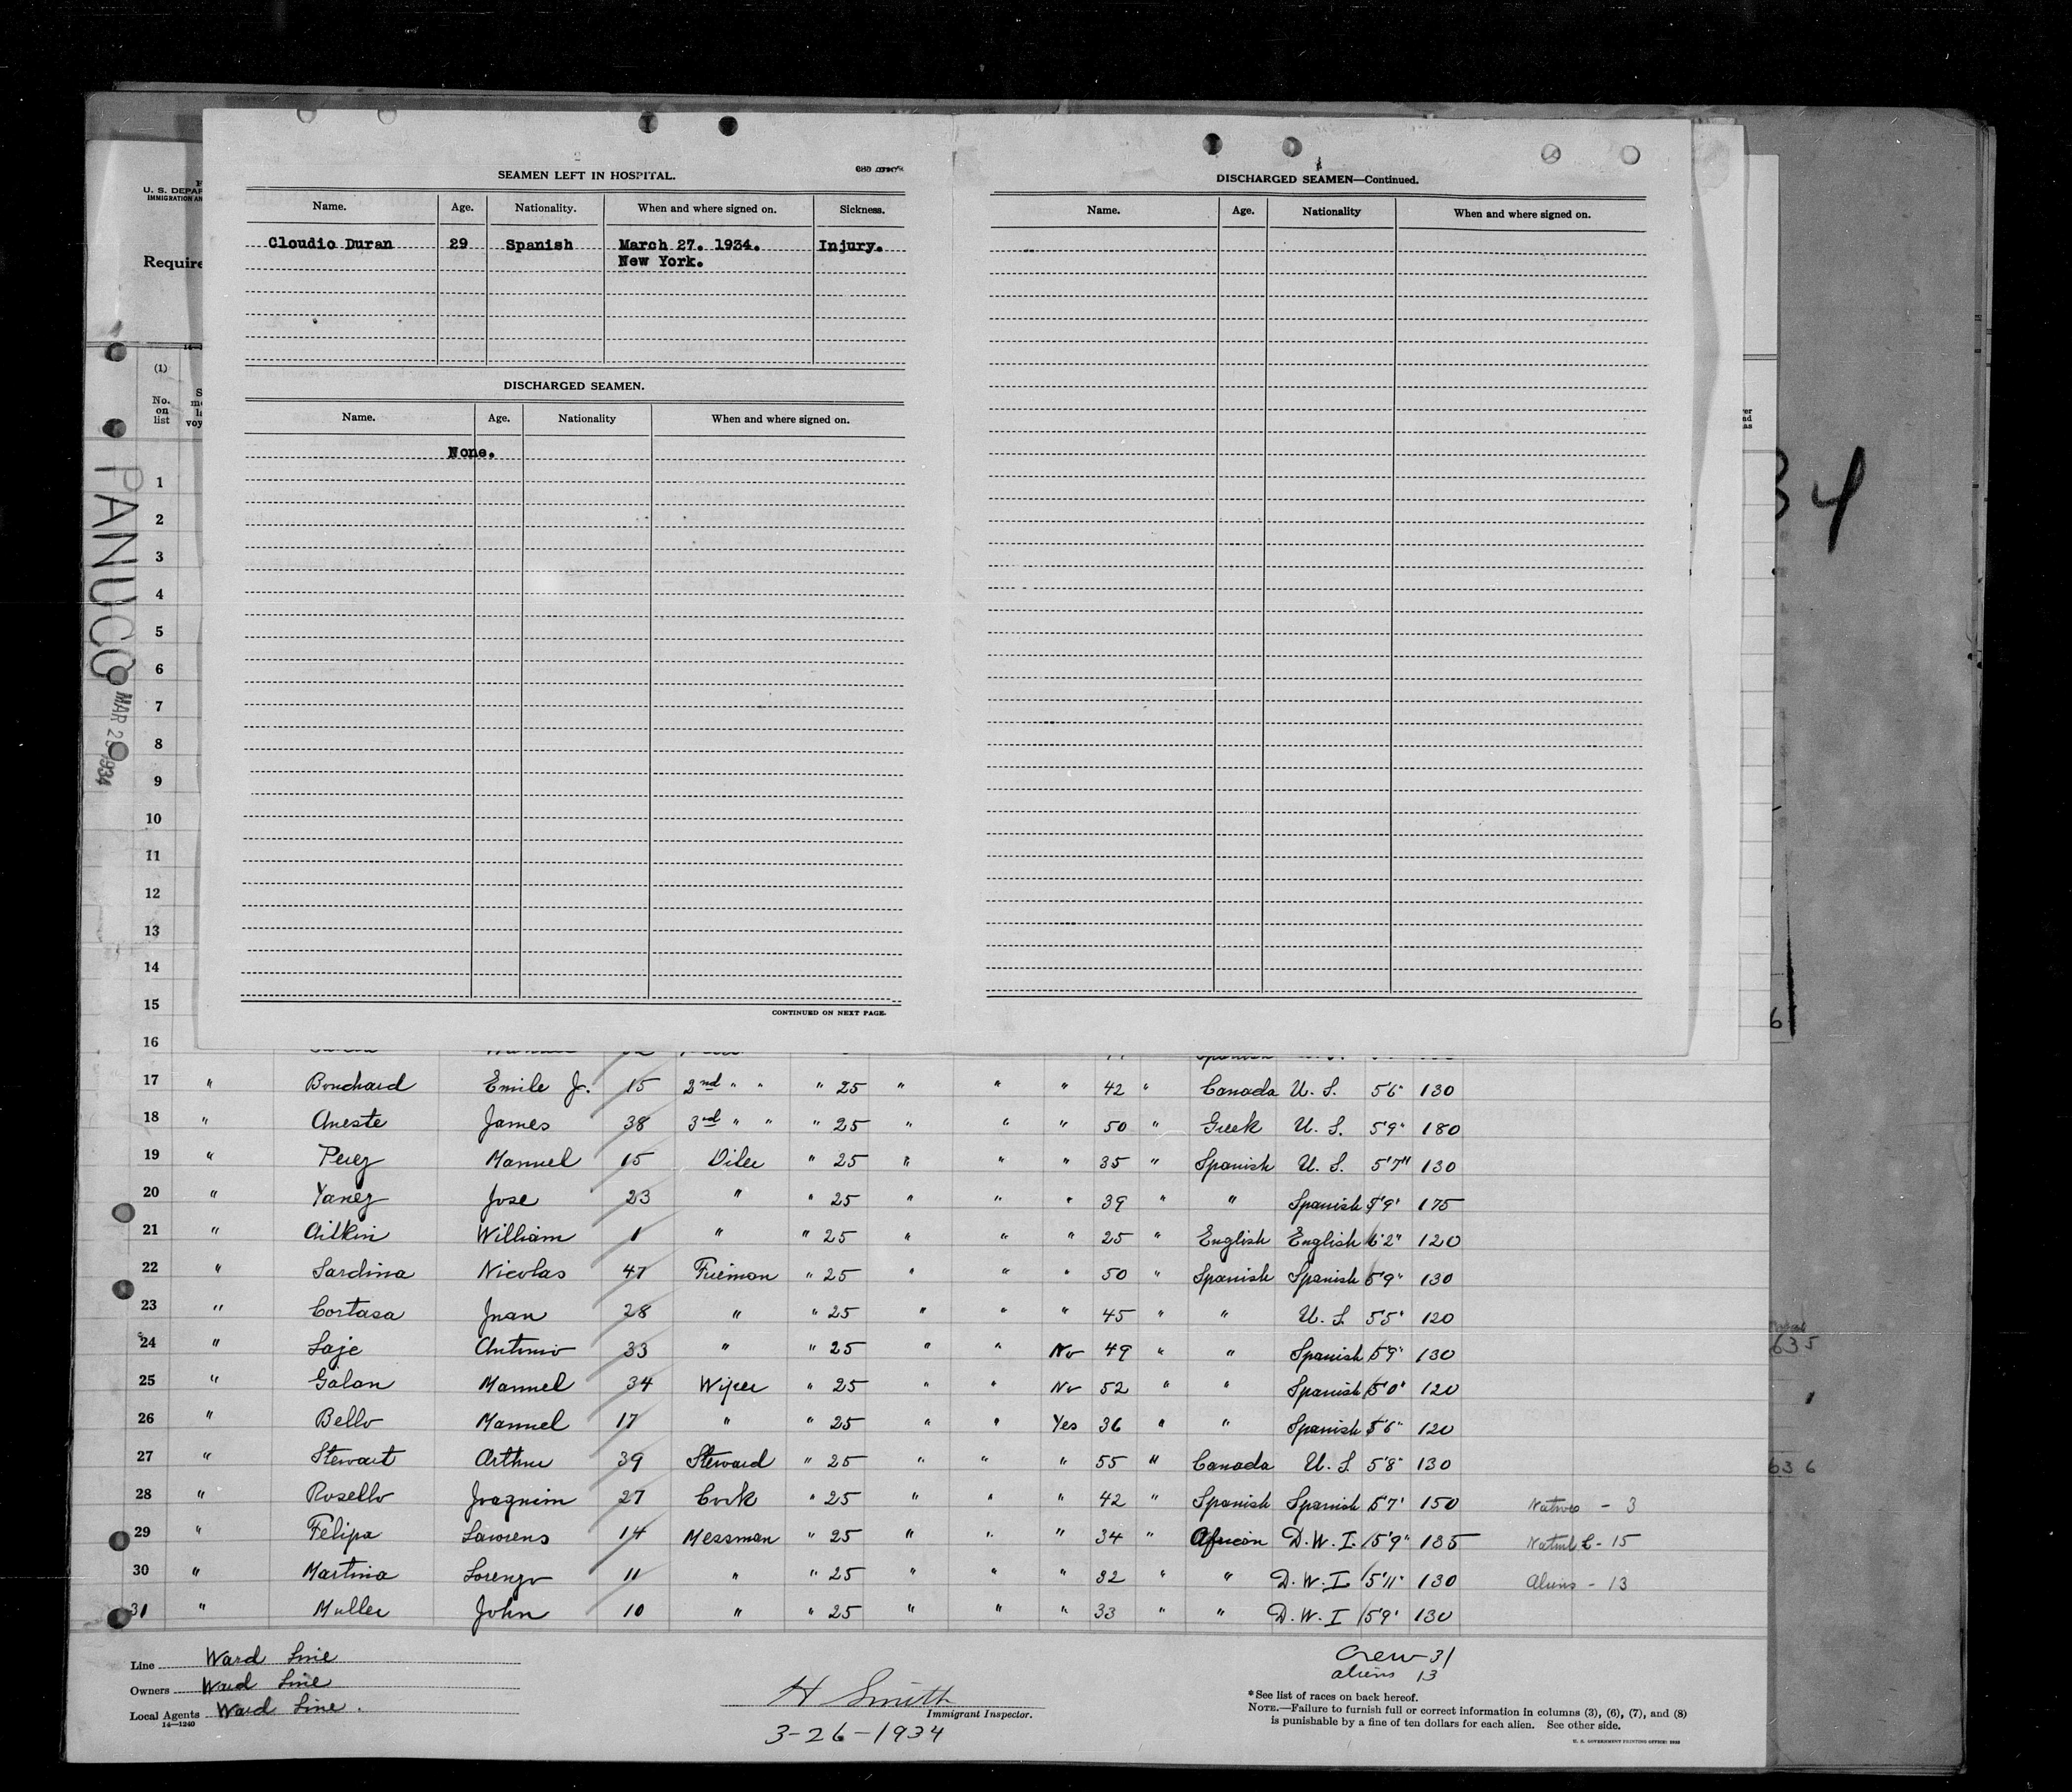 SEAMEN LEFT IN HOSPITAL.
Name. Age. Nationality. When and where signed on. Sickness.
Cloudio Duran 29 Spanish March 27. 1934. Injury.
New York.
DISCHARGED SEAMEN.
Name. Age. Nationality When and where signed on.
None.
CONTINUED ON NEXT PAGE.
DISCHARGED SEAMEN—Continued.
Name. Age. Nationality When and where signed on.
U. S. DEPAR
IMMIGRATION AN
Require
(1)
No. on list
PANUCO
MAR 29 1934
34
1
2
3
4
5
6
7
8
9
10
11
12
13
14
15
16
17 " Bouchard Emile Jr. 15 2nd " " " 25 " " " 42 " Canada U. S. 5'6" 130
18 " Aneste James 38 3rd " " " 25 " " " 50 " Greek U. S. 5'9" 180
19 " Perez Manuel 15 Oiler " 25 " " " 35 " Spanish U. S. 5'7" 130
20 " Yanez Jose 23 " " 25 " " " 39 " " Spanish 5'9" 175
21 " Aitkin William 1 " " 25 " " " 25 " English English 6'2" 120
22 " Sardina Nicolas 47 Fireman " 25 " " " 50 " Spanish Spanish 5'9" 130
23 " Cortasa Juan 28 " " 25 " " " 45 " " U. S. 5'5" 120
24 " Saje Antonio 33 " " 25 " " No 49 " " Spanish 5'9" 130
25 " Galan Manuel 34 Wiper " 25 " " No 52 " " Spanish 5'0" 120
26 " Bello Manuel 17 " " 25 " " Yes 36 " " Spanish 5'6" 120
27 " Stewart Arthur 39 Steward " 25 " " " 55 " Canada U. S. 5'8" 130
28 " Rosello Joaquim 27 Cook " 25 " " " 42 " Spanish Spanish 5'7" 150 Natives - 3
29 " Felipa Lawrens 14 Messman " 25 " " " 34 " African D. W. I. 5'9" 135 - 15
30 " Martina Lorenzo 11 " " 25 " " " 32 " " D. W. I. 5'11" 130 Aliens - 13
31 " Muller John 10 " " 25 " " " 33 " " D. W. I 5'9" 130
635
636
Line Ward Line
Owners Ward Line
Local Agents Ward Line.
14—1240
H Smith
Immigrant Inspector.
3-26-1934
Crew 31
aliens 13
*See list of races on back hereof.
NOTE.—Failure to furnish full or correct information in columns (3), (6), (7), and (8)
is punishable by a fine of ten dollars for each alien. See other side.